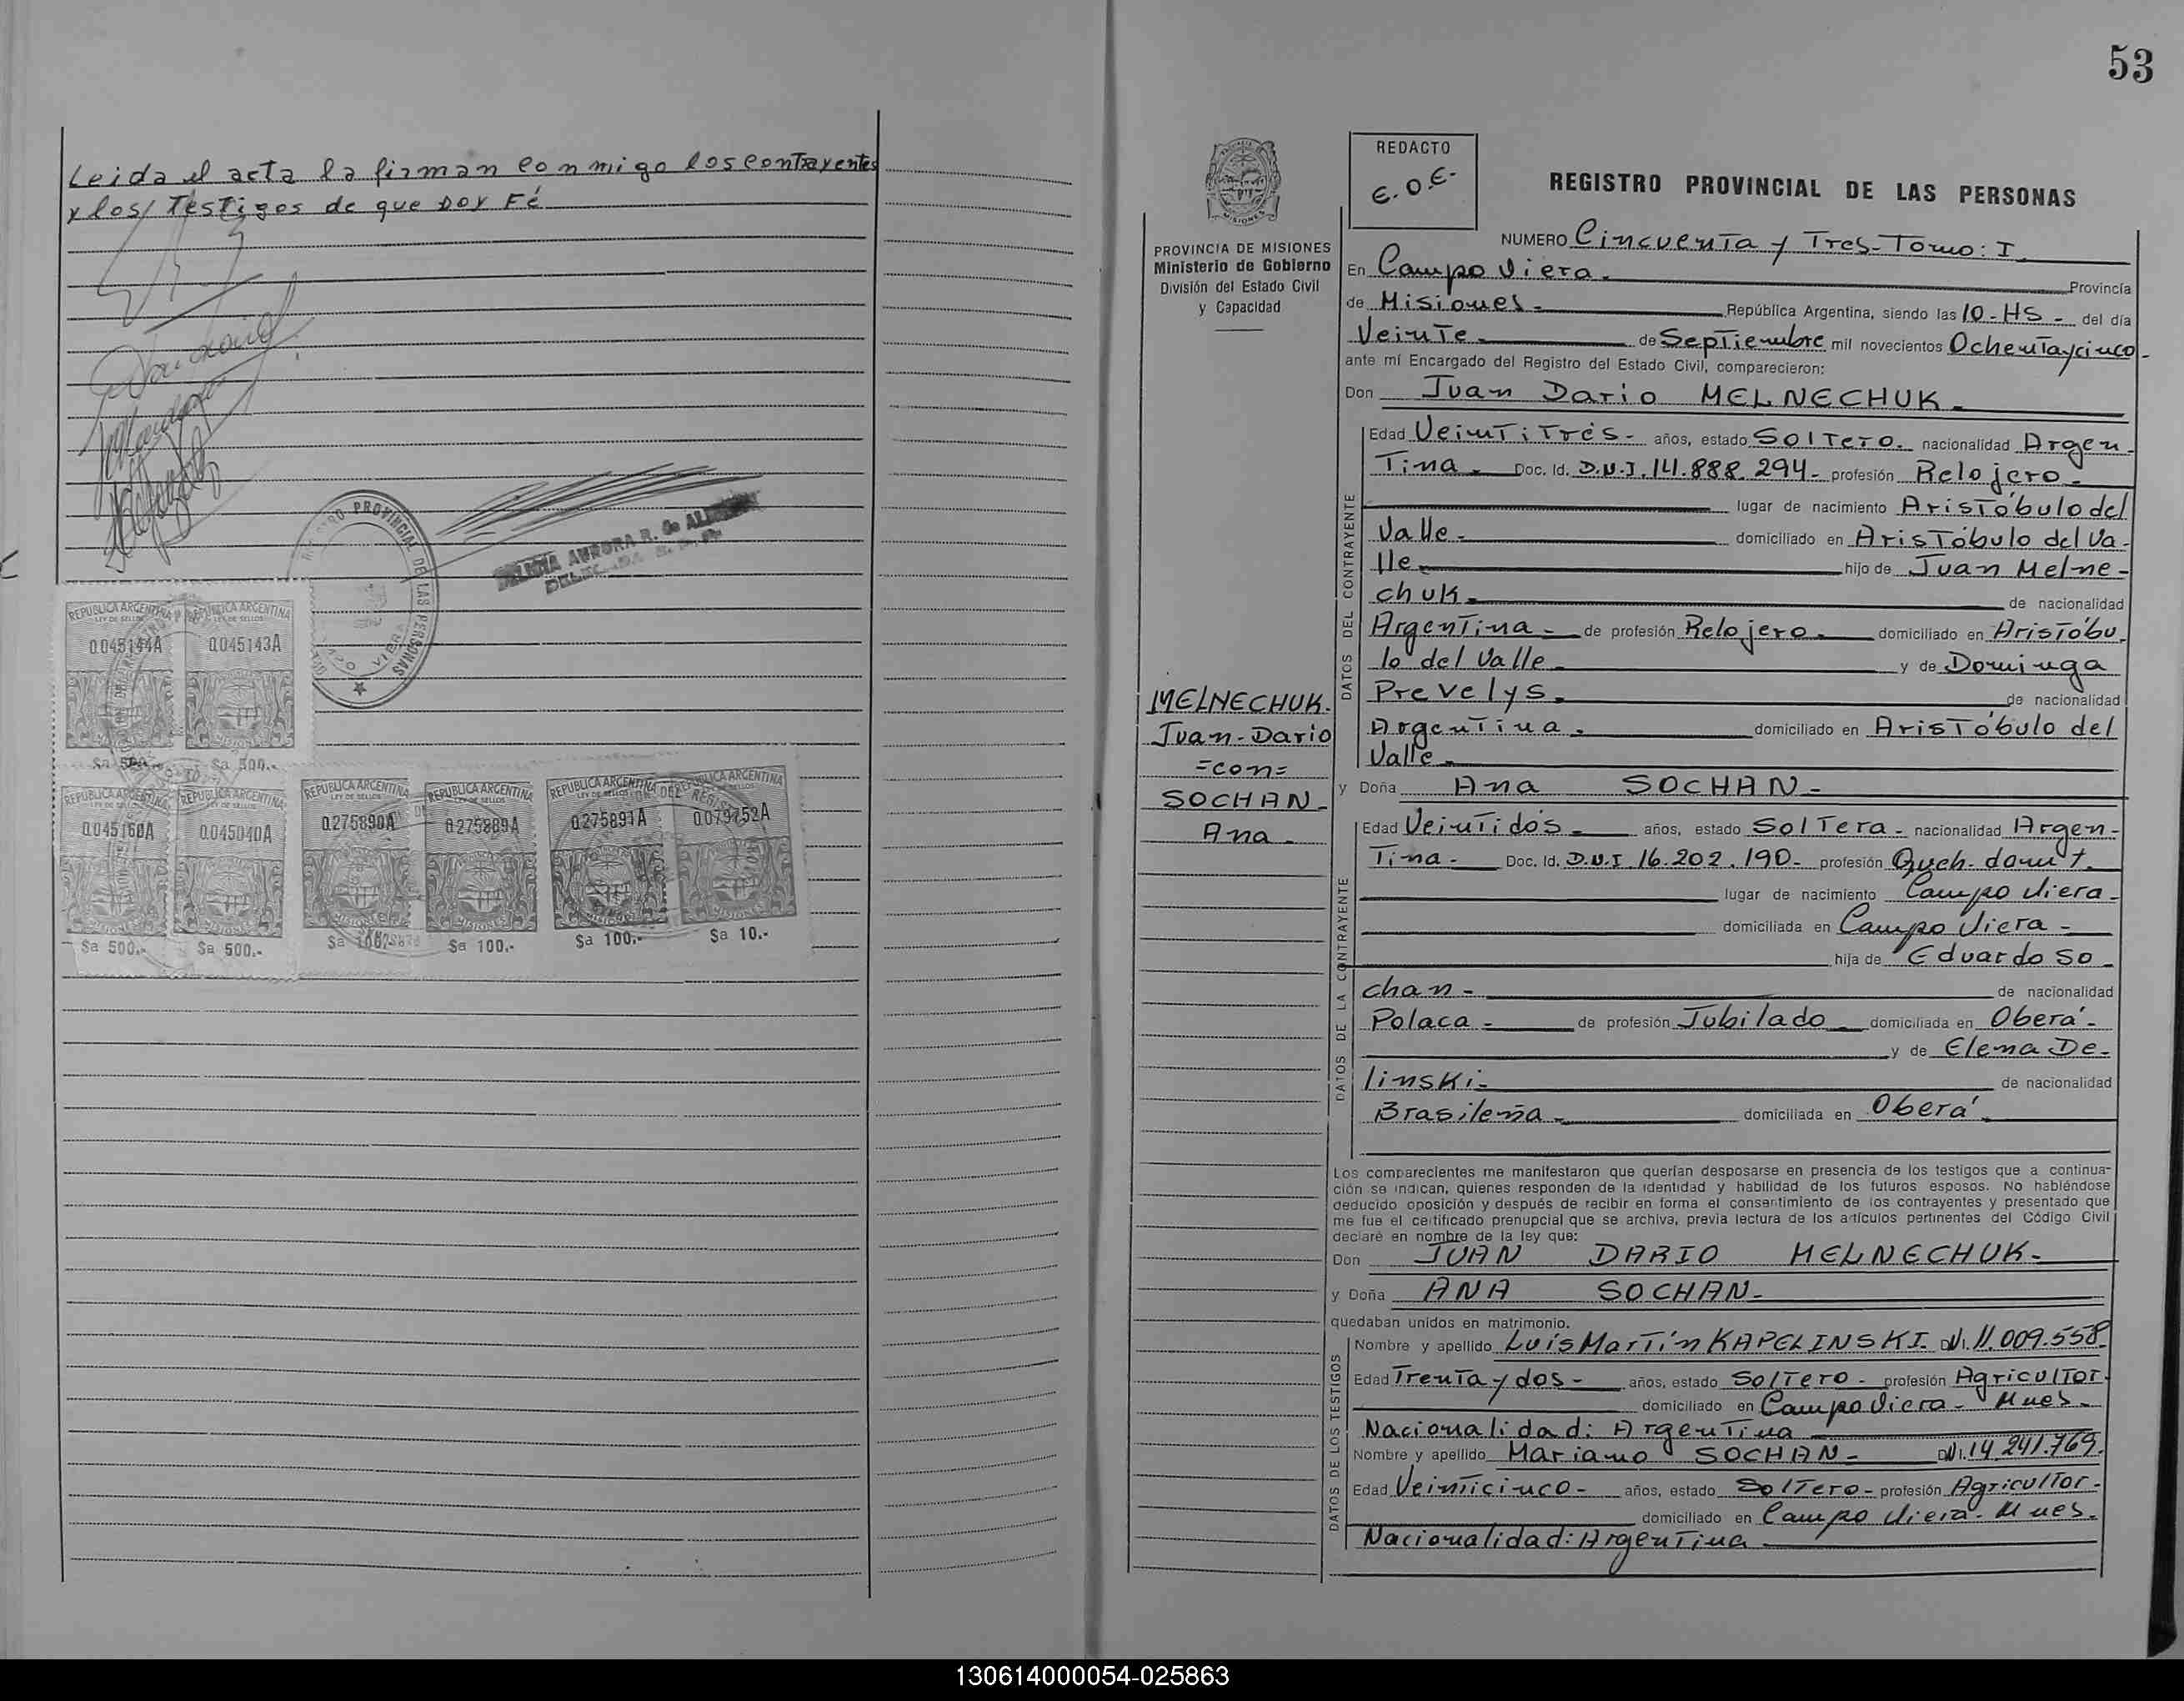 Leida el acta la firman conmigo los contrayentes
y los/ Testigos de que Doy Fé
REGISTRO PROVINCIAL DE LAS PERSONAS
CAMPO VIERA
DELEGADA
REPUBLICA ARGENTINA REPUBLICA ARGENTINA
LEY DE SELLOS LEY DE SELLOS
0.045144A 0.045143A
MISIONES MISIONES
$a 500.- $a 500.-
REPUBLICA ARGENTINA REPUBLICA ARGENTINA REPUBLICA ARGENTINA REPUBLICA ARGENTINA REPUBLICA ARGENTINA REPUBLICA ARGENTINA
LEY DE SELLOS
0.045160A 0.045040A 0.275890A 0.275889A 0.275891A 0.079752A
MISIONES
$a 500.- $a 500.- $a $a 100.- $a 100.- $a 10.-
53
REDACTO
E.O.E.
REGISTRO PROVINCIAL DE LAS PERSONAS
PROVINCIA DE MISIONES
Ministerio de Gobierno
División del Estado Civil
y Capacidad
NUMERO Cincuenta y Tres - Tomo: I
En Campo Viera - Provincia
de Misiones - República Argentina, siendo las 10 - HS - del día
Veinte - de Septiembre mil novecientos Ochenta y cinco -
ante mí Encargado del Registro del Estado Civil, comparecieron:
Don Juan Dario MELNECHUK -
DATOS DEL CONTRAYENTE
Edad Veintitrés - años, estado Soltero - nacionalidad Argen-
tina - Doc. Id. D.N.I. 14.888.294 - profesión Relojero -
lugar de nacimiento Aristóbulo del
Valle - domiciliado en Aristóbulo del Va-
lle - hijo de Juan Melne-
chuk - de nacionalidad
Argentina - de profesión Relojero - domiciliado en Aristóbu-
lo del Valle - y de Dominga
Prevelys - de nacionalidad
Argentina - domiciliado en Aristóbulo del
Valle -
MELNECHUK -
Juan - Dario
= con =
SOCHAN -
Ana -
y Doña Ana SOCHAN -
DATOS DE LA CONTRAYENTE
Edad Veintidós - años, estado Soltera - nacionalidad Argen-
tina - Doc. Id. D.N.I. 16.202.190 - profesión Queh. domést.
lugar de nacimiento Campo Viera -
domiciliada en Campo Viera -
hija de Eduardo So-
chan - de nacionalidad
Polaca - de profesión Jubilado - domiciliada en Oberá -
y de Elena De-
linski - de nacionalidad
Brasileña - domiciliada en Oberá -
Los comparecientes me manifestaron que querían desposarse en presencia de los testigos que a continua-
ción se indican, quienes responden de la identidad y habilidad de los futuros esposos. No habiéndose
deducido oposición y después de recibir en forma el consentimiento de los contrayentes y presentado que
me fue el certificado prenupcial que se archiva, previa lectura de los artículos pertinentes del Código Civil
declaré en nombre de la ley que:
Don JUAN DARIO MELNECHUK -
y Doña ANA SOCHAN -
quedaban unidos en matrimonio.
DATOS DE LOS TESTIGOS
Nombre y apellido Luis Martín KAPELINSKI - DNI. 11.009.558
Edad Treinta y dos - años, estado Soltero - profesión Agricultor
domiciliado en Campo Viera - Mnes -
Nacionalidad: Argentina
Nombre y apellido Mariano SOCHAN - DNI. 14.241.769
Edad Veinticinco - años, estado Soltero - profesión Agricultor -
domiciliado en Campo Viera - Mnes -
Nacionalidad: Argentina
130614000054-025863